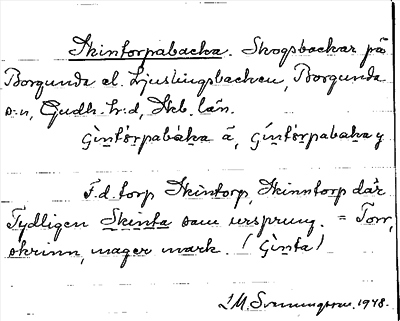 Skintorpabacka. Skogsbackar på
Borgunda el. Ljuslingsbacken, Borgunda
s:n, Gudh. h:d, Skb. län.
Gìntórpabàka ä, Gíntórpabaka y
F.d. torp Skintorp, Skinntorp där
Tydligen Skinta som ursprung. = Torr,
skrinn, mager mark. (Ginta)
1948.